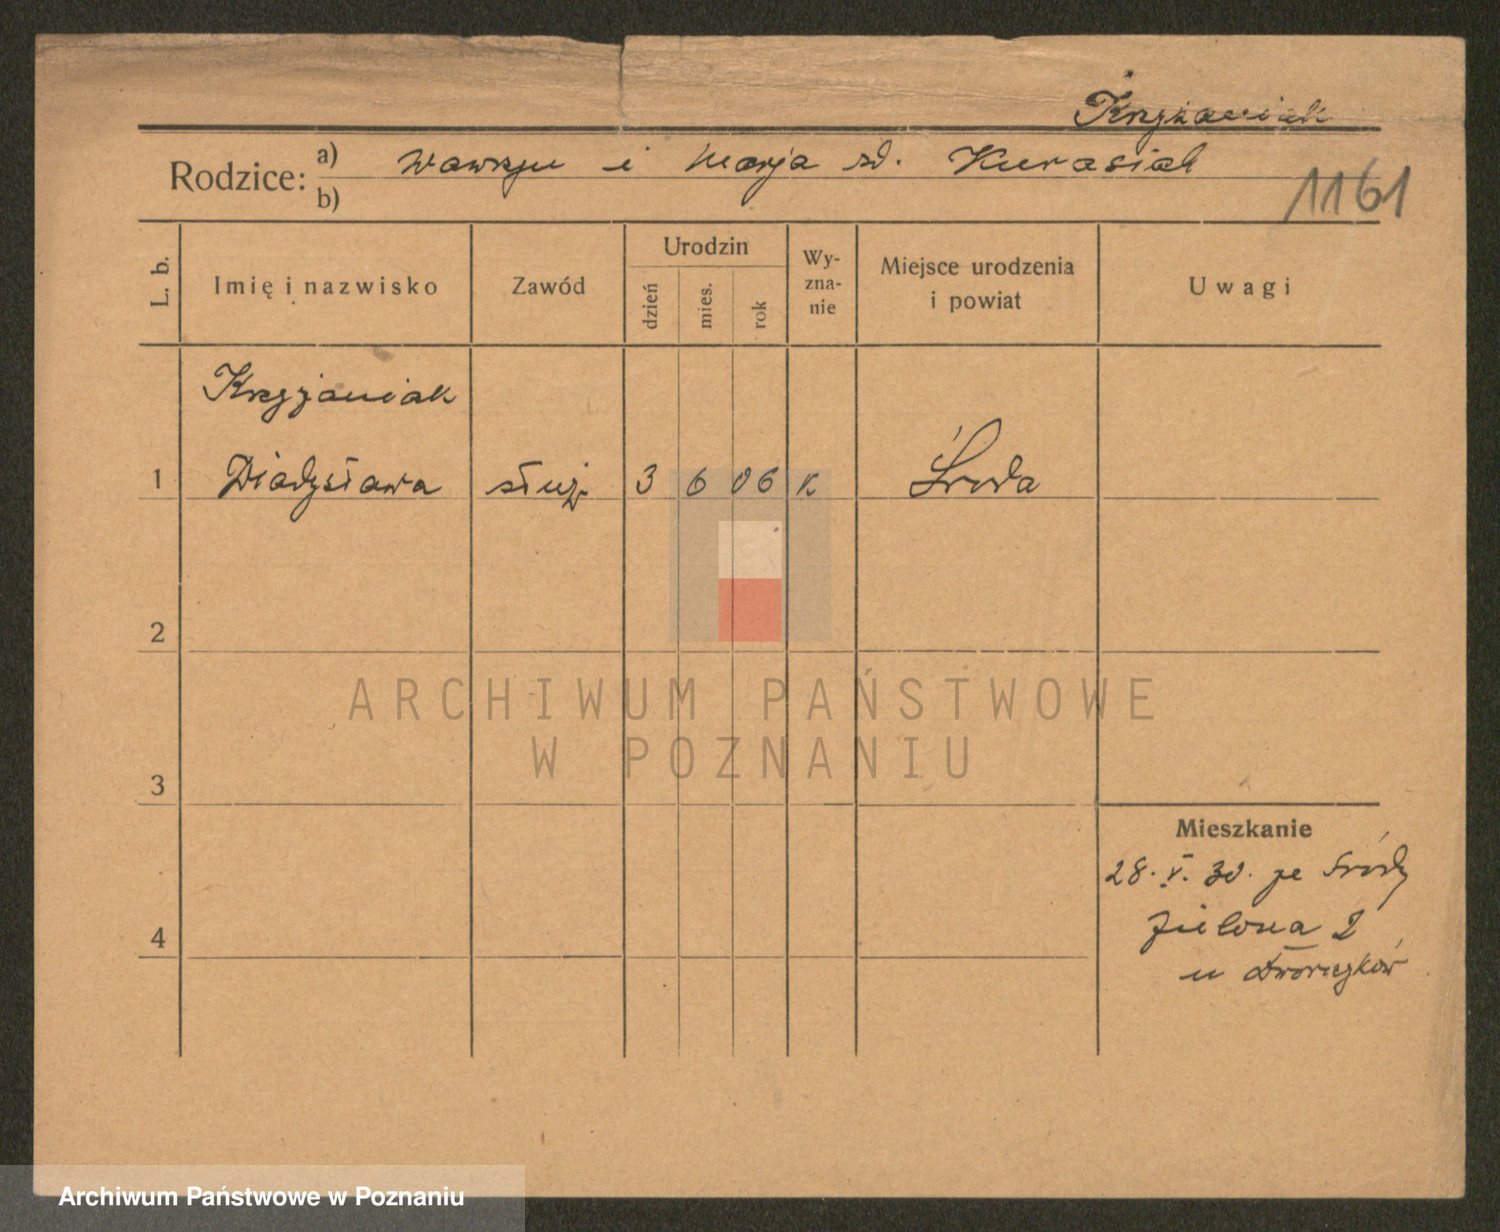 Krzyżaniak
Rodzice: a) Wawrzyn i Marja zd. Kurasiak
b)
1161
L. b.
Imię i nazwisko
Zawód
Urodzin
dzień
mies.
rok
Wy-
zna-
nie
Miejsce urodzenia
i powiat
Uwagi
Krzyżaniak
1 Władysława służ. 3 6 06 k Środa
2
3
4
Mieszkanie
28. V. 30. ze Środy
Zielona 2
u
ARCHIWUM PAŃSTWOWE
W POZNANIU
Archiwum Państwowe w Poznaniu